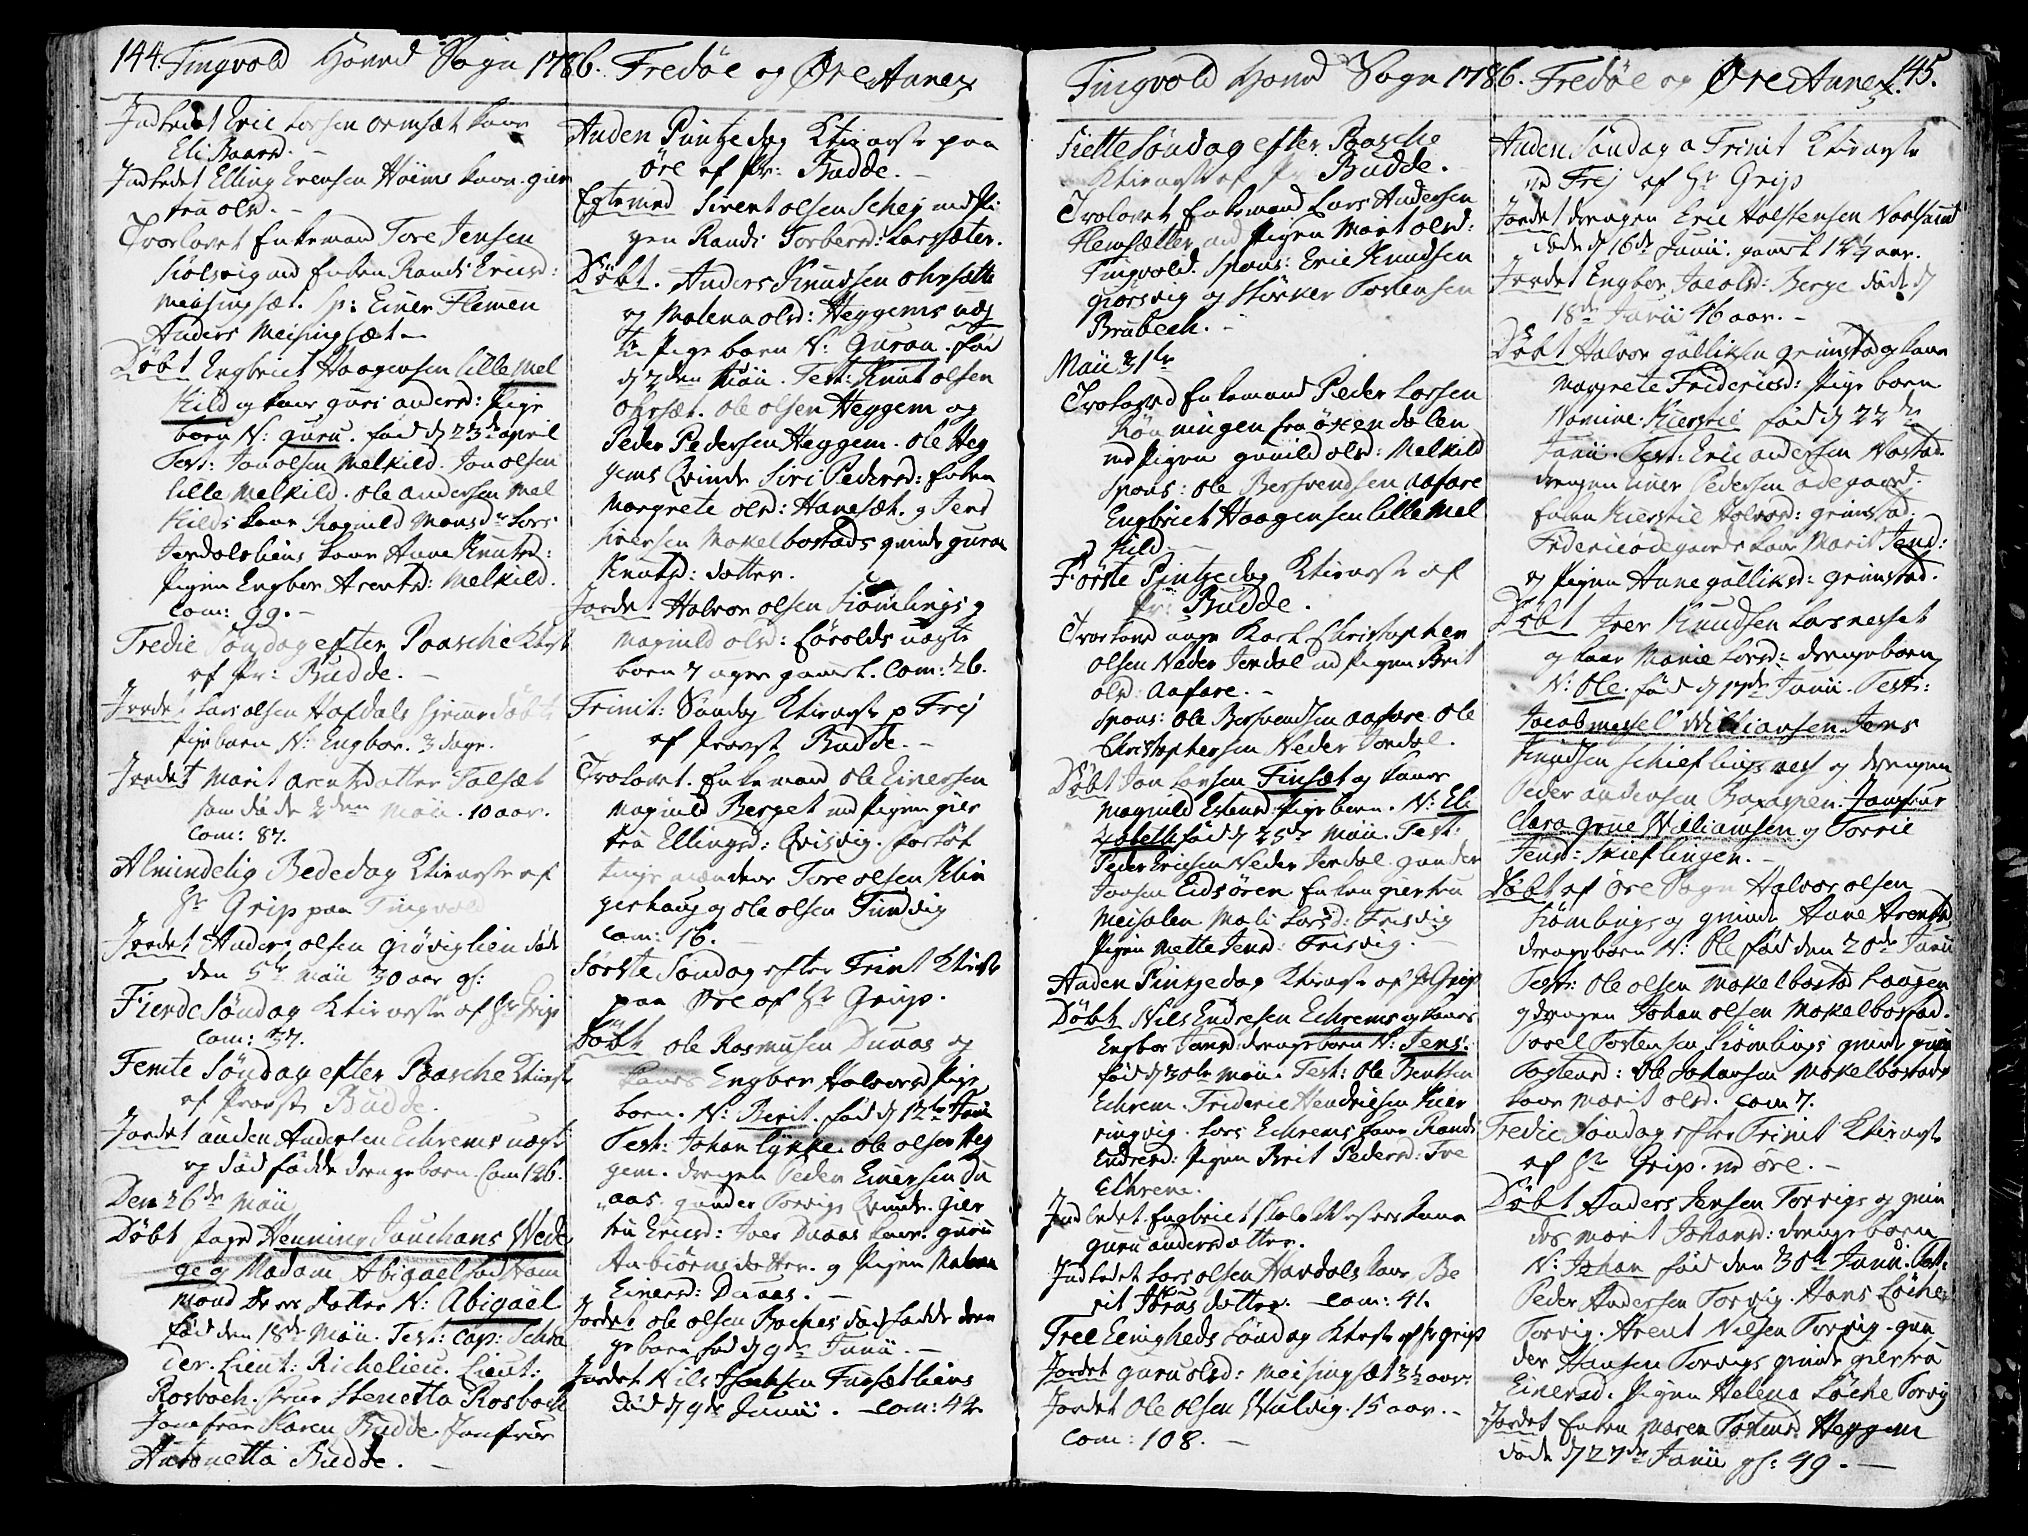 144. Tingvold Hoved Sogn 1786. Fredöe og Øre Annex
Indledet Eric Larsen Ormsæt kone
Eli Baard. -
Indledet Elling Evensen Høims kone gier
tru olsd. -
Trolovet Enkemand Tore Jensen
Kolsvig med Enken Randi Ericsd:
Meisingsæt. Sp: Einer Flemen
Anders Meisingsæt -
Döbt Engbrict Haagensen Lille Mel
Kild og kone guri andersd: Pige
barn N: guru. föd d 23de april
Test: Jon olsen Melkild. Jon olsen
Lille Melkild. ole andersen Mel
Kilds kone Ragnild Monsdr Lars
Jerdalsliens kone Anne Knutsd:
Pigen Engber Arentsd: Melkild.
Com: 99. -
Tredie Söndag efter Paasche Ktieniste
af Pr: Budde. -
Jordet Lars olsen Hafdals hiemedöbte
Pigebarn N: Engbor. 3 dage.
Jordet Marit arentsdatter Talsæt
som döde 2den Maii. 10 aar.
Com: 87.
Almindelig Bededag Ktieniste af
Hr Grip paa Tingvold
Jordet Anders olsen giövglien döde
den 5te Maii 30 aar gl:
Fierde Söndag Ktieniste af Hr Grip
Com: 37.
Femte Söndag efter Paasche Ktieniste
af Provst Budde.
Jordet anden Andersen Echrems uægte
og död födde drengebarn. Com 126.
Den 26de Maii
Döbt Capt Henning Jauchans Wede
ge og Madam Abigael
mond deres datter N: Abigael
föd den 18de Maii. Test: Cap: Schra
der. Lieut: Richelieu. Lieut:
Rosboch. frue Henetta Rosboch
Jomfrue Karen Budde. Jomfrue
Antonetta Budde. -
Anden Pintzedag Ktieniste paa
Øre af Pr: Budde. -
Egteviet Sivert olsen Scheg med Pi
gen Randi Torbersd: Larssæter.
Döbt. Anders Knudsen ohrsætt
og Malena olsd: Heggems uæg
te Pigebarn N: Guroe. föd
d 2den Maii. Test: Knut olsen
ohrsæt. ole olsen Heggem og
Peder Pedersen Heggem. ole Heg
gems Qvinde Siri Pedersd: Enken
Margrete olsd: Hanesæt. og Jend
Iversen Mokelbostads qvinde guroe
Knutsd: datter.
Jordet Halvor olsen Siömlings og
Magnild olsd: uægte
barn 7 uger gamelt. Com: 26.
Trinit: Söndag Ktieniste p Frej
af Provst Budde. -
Trolovet. Enkemand ole Einersen
Magnild Berget med Pigen gier
tru Ellingsd: Qvisvig. forlöf
tings mændene Tore olsen Klin
gerhaug og ole olsen Tundvig
Com: 16. -
Förste Söndag efter Trinit Ktieniste
paa Øre af Hr Grip.
Döbt ole Rasmusen Dunas og
kones Engber Halvorsd Pige
barn. N: Berit. föd d 12te Junii
Test: Johan Lykke. ole olsen Heg
gem. drengen Peder Einersen Du
aas. gunder Torvigs Qvinde. gier
tru Ericsd: Iver Duaas kone. guru
Anbiörnsdatter. og Pigen Malena
Einersd: Duaas. -
Jordet ole olsen Boches död födde dren
gebarn föd d 9de Junii. -
Jordet Nils Isaksen Fursætliens
död d 9de Junii. - Com: 42
Tingvold Hoved Sogn 1786. Fredöe og Øre Annex. 145.
Siette Söndag efter Paasche
Ktieniste af Pr Budde. -
Trolovet Enkemand Lars Andersen
Flemsætter med Pigen Marit olsd:
Tingvold. Spons: Eric Knudsen
giörsvig og Störker Tostensen
Brubech. -
Maii 31te
Trolovd Enkemand Peder Larsen
Röe ningen fra Öxendalen
med Pigen gunild olsd: Melkild
Spons: ole Bersvendsen aafare
Engbrict Haagensen Lille Mel
kild. -
Förste Pintzedag Ktieniste af
Pr: Budde.
Trolovd unge Karl Christopher
olsen Neder Jerdal med Pigen Brit
olsd: Aafare. -
Spons: ole Bersvendsen aafare. ole
Christophersen Neder Jordal.
Döbt Jon Larsen Finsæt og kones
Magnild Estensd: Pigebarn. N: Eli
sabeth föd d 25de Maii. Test:
Peder Ericsen Neder Jerdal. gunder
Jonsen Eidsören. Enken giertru
Meisalen. Mali Larsd: Trisvig
Pigen Mette Jensd: Frisvig. -
Anden Pintzedag Ktieniste af Hr Grip
Döbt Nils Endresen Echrems og kones
Engbor Jensd: drengebarn N: Jens.
föd d 30te Maii. Test: Ole Bentsen
Echrem. Frideric Hendricsen Kier
ringvig. Lars Echrems kone Randi
Endresd: Pigen Brit Pedersd: Tre
Echrem.
Indledet Engbrict kone
guru andersdatter.
Indledet Lars olsen Havdals kone Be
rit datter. - Com: 41.
Tree Eenigheds Söndag Ktieniste af Hr Grip
Jordet guru olsd: Meisingsæt 3½ aar.
Jordet Ole olsen Wulvig. 15 aar. -
Com: 108. -
Anden Söndag a Trinit Ktieniste
ved Frej af Hr Grip
Jordet drengen Eric Halstensen Varsund
döde d 16de Junii. gamel 14½ aar.
Jordet Engbor Jacobsd: Berge döde d
18de Junii 46 aar. -
Döbt Halvor gulliksen grimstad og kone
Margrete Fridericsd: Pigebarn
Nomine. Kierstie föd d 22de
Junii. Test: Eric andersen Nostad.
drengen Einer Pedersen ödegaard.
Enken Kierstie Halvorsd: grimstad.
Frideric ödegaards kone Marit Jensd:
og Pigen Anne gulliksd: grimstad.
Döbt Iver Knudsen Larneset
og kone Marie Larsd: drengebarn
N: Ole. föd d 17de Junii. Test:
Jacob Meyel Williamsen. Jens
Knudsen Schieflingsnes og drengen
Peder andersen Jomfrue
Clara grue Williamsen og Torrie
Jensd: Skieflingen. -
Döbt af Øre Sogn Halvor olsen
Siömlings og qvinde Anne Arentsd
drengebarn N: Ole föd den 20de Junii
Test: Ole olsen Mokelbostad Laagen
og drengen Johan olsen Mokelbostad.
Povel Tostensen Siömlings qvinde guru
Tostensd: Ole Johansen Mokelbostads
kone Marit olsd. Com 7.
Tredie Söndag efter Trinit Ktieniste
af Hr Grip. ved Øre. -
Döbt Anders Jensen Torvigs og qvin
des Marit Johansd: drengebarn
N: Johan föd den 30te Junii. Test:
Peder Andersen Torvig. Hans Löche
Torvig. Arent Nilsen Torvig. gun
der Hansen Torvigs qvinde giertru
Einersd. Pigen Helena Löche Torvig
Jordet Enken Maren Tostensd Heggem
döde d 27de Junii gl: 49. -